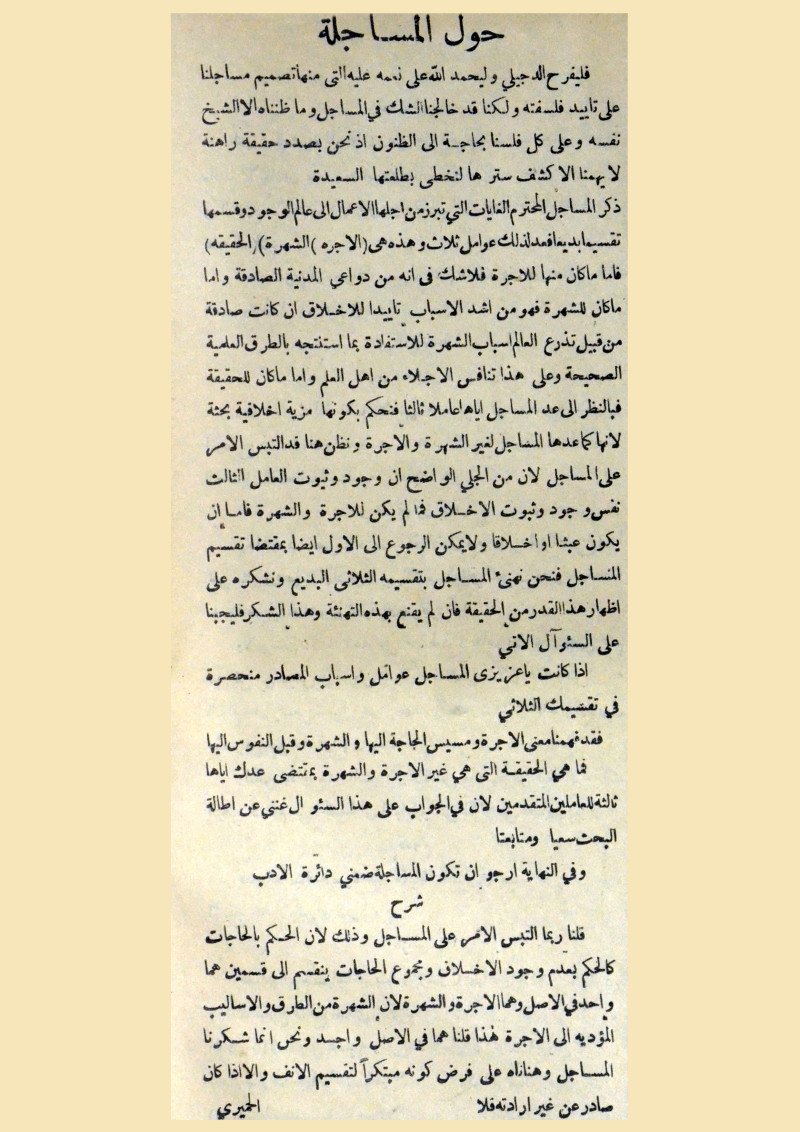 حول المساجلة
فليفرح الدجيلي وليحمد الله على نعمه عليه التي منها تصميم مساجلنا
على تاييد فلسفته ولكنا قد خالجنا الشك في المساجل وما ظنناه الا الشيخ
نفسه وعلى كل فلسنا بحاجة الى الظنون اذ نحن بصدد حقيقة راهنة
لا يهمنا الا كشف سترها لنخطى بطلعتها السعيدة
ذكر المساجل المحترم الغايات التي تبرز من اجلها الاعمال الى عالم الوجود وقسمها
تقسيما بديعا فعد لذلك عوامل ثلاث وهذه هى (الاجره) (الشهرة) (الحقيقه)
فاما ماكان منها للاجرة فلاشك فى انه من دواعي المدنية الصادقة واما
ماكان للشهرة فهو من اشد الاسباب تاييدا للاخلاق ان كانت صادقة
من قبيل تذرع العالم اسباب الشهرة للاستفادة بما استنتجه بالطرق العلمية
الصحيحة وعلى هذا تنافس الاجلاء من اهل العلم واما ماكان للحقيقة
فبالنظر الى عد المساجل اياها عاملا ثالثا فنحكم بكونها مزية اخلاقية بحثة
لانها كما عدها المساجل لغير الشهرة والاجرة ونظن هنا قد التبس الامر
على المساجل لان من الجلي الواضح ان وجود وثبوت العامل الثالث
نفس وجود وثبوت الاخلاق فما لم يكن للاجرة والشهرة فاما إن
يكون عبثا او اخلاقا ولايمكن الرجوع الى الاول ايضا بمقتضا تقسيم
المساجل فنحن نهنئ المساجل بتقسيمه الثلاثى البديع ونشكره على
اظهار هذا القدر من الحقيقة فان لم يقنع بهذه التهنئة وهذا الشكر فليجبنا
على السئوآل الاتي
اذا كانت ياعزيزى المساجل عوامل واسباب المصادر منحصرة
في تقسيمك الثلاثي
فقد فهمنا معنى الاجرة ومسيس الحاجة اليها والشهرة وقبل النفوس اليها
فما هي الحقيقة التى هي غير الاجرة والشهرة بمقتضى عدك اياها
ثالثة للعاملين المتقدمين لان في الجواب على هذا السئوال غنني عن اطالة
البحث سعيا ومتابعتا
وفي النهاية ارجو ان تكون المساجلة ضمني دائرة الادب
شرح
قلنا ربما التبس الامر على المساجل وذلك لان الحكم بالحاجات
كالحكم بعدم وجود الاخلان ومجموع الحاجات ينقسم الى قسمين هما
واحد في الاصل وهما الاجرة والشهرة لان الشهرة من الطرق والاساليب
المؤديه الى الاجرة لهذا قلنا هما في الاصل واحد ونحن انما شكرنا
المساجل وهناناه على فرض كونه مبتكراً لتقسيم الانف والا اذا كان
صادر عن غير ارادته فلا الحميري